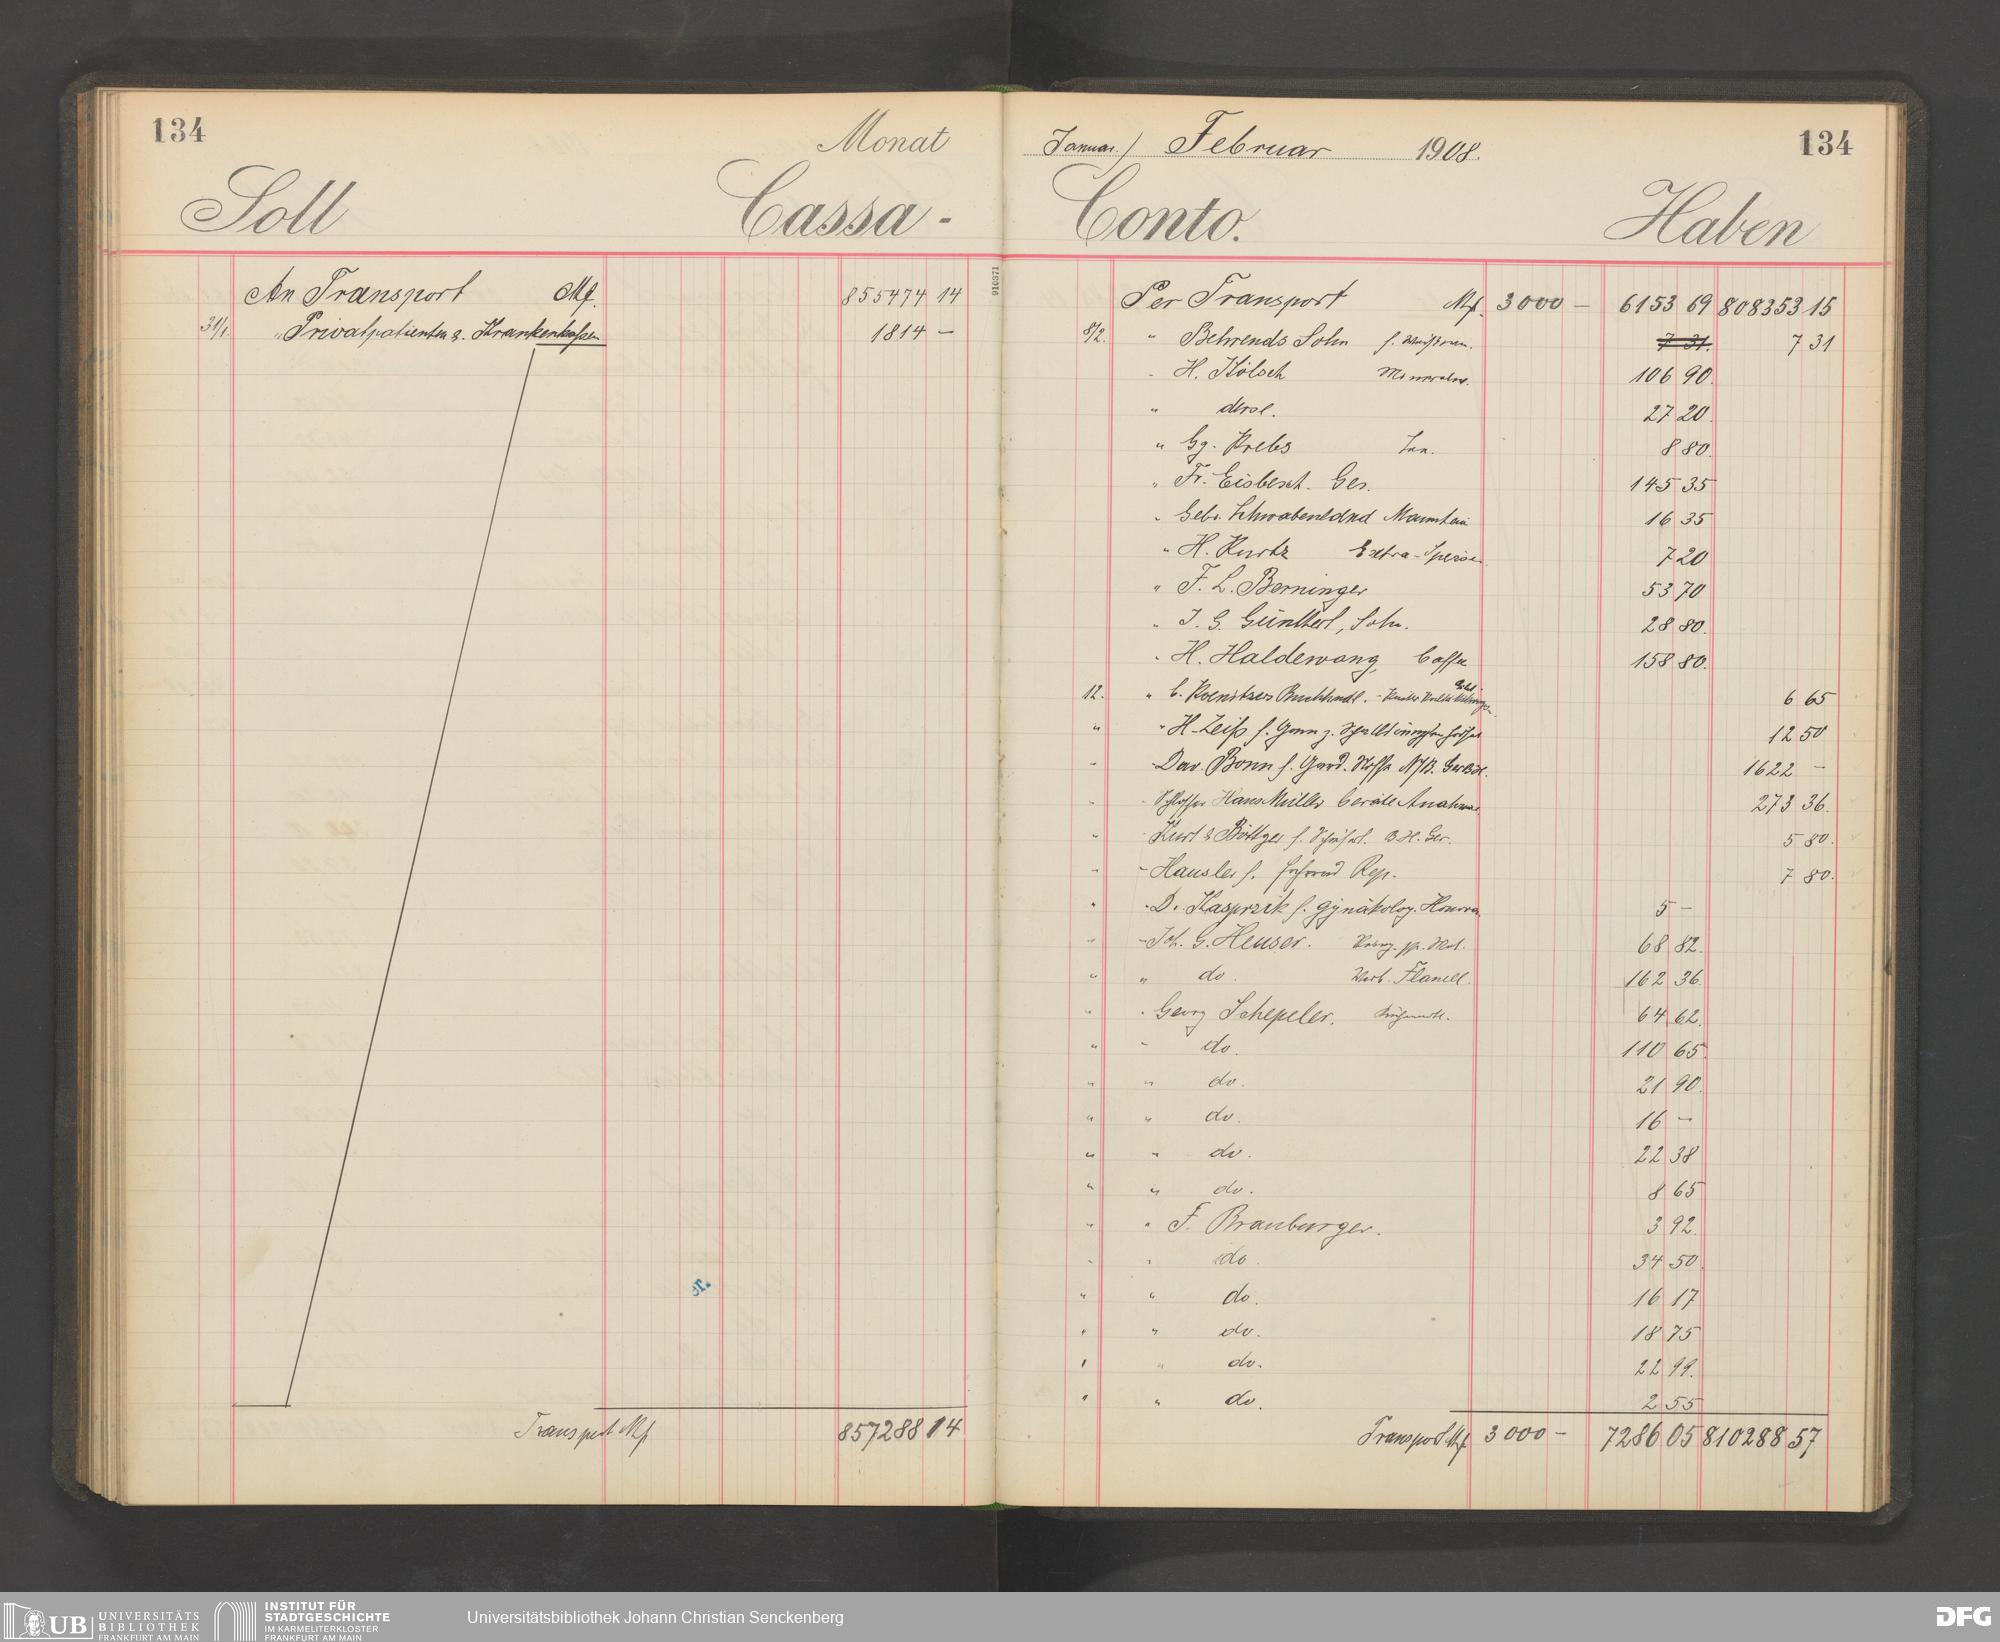 134
Monat
Soll
Cassa -
An Transport Mk. 855474 14
31/1. " Privatpatienten & Krankenkassen 1814 —
Transport Mk 857288 14
Januar / Februar 1908.
134
Conto.
Haben
910371
Per Transport Mk. 3000 — 6153 69 808353 15
8/2. " Behrends Sohn f. 7 31. 7 31
" H. Kölsch 106 90.
" derse. 27 20.
" Gg. Krebs 8 80.
" Fr. Eisbesch. Ges. 145 35
" Gebr. Mannheim 16 35
" H. Kurtz Extra-Speisen 7 20
" F. L. Berninger 53 70
" J. G. Günther, Sohn. 28 80.
" H. Haldewang, Caffee 158 80.
12. " C. Koenitzers Buchhandl. 6 65
" " H. Zeiß f. 12 50
" " Dav. Bonn f. 1622 —
" " Schlosser Hans Müller 273 36.
" " Kurt & Böttger f. 5 80.
" " Hausler f. Rep. 7 80.
" " Dr. Kasprzik f. gynäkolog. Honorar 5 —
" " Joh. G. Heuser. 68 82.
" " do. Flanell. 162 36.
" " Georg Schepeler. 64 62.
" " do. 110 65
" " do. 21 90.
" " do. 16 —
" " do. 22 38
" " do. 8 65
" " F. Brauburger. 3 92.
" " do 34 50.
" " do. 16 17
" " do. 18 75
" " do. 22 99.
" " do. 2 55
Transport Mk 3000 — 7286 05 810288 57
UB UNIVERSITÄTS
BIBLIOTHEK
FRANKFURT AM MAIN
INSTITUT FÜR
STADTGESCHICHTE
IM KARMELITERKLOSTER
FRANKFURT AM MAIN
Universitätsbibliothek Johann Christian Senckenberg
DFG